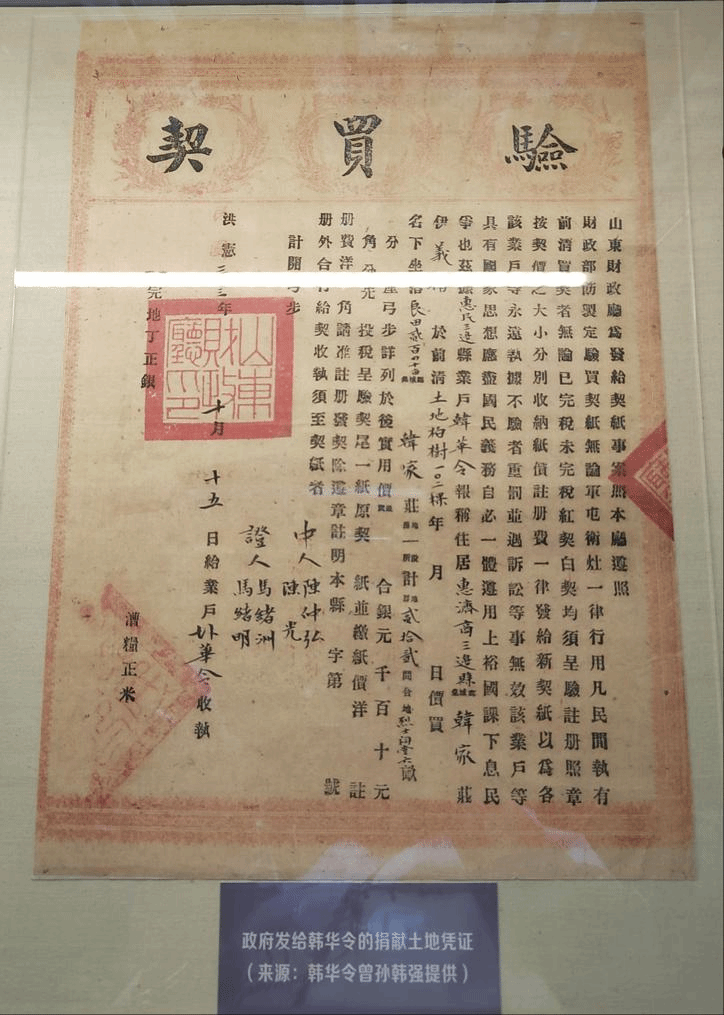 驗買契
山東財政廳為發給契紙事案照本廳遵照
財政部防製定驗買契紙無論軍屯衛灶一律行用凡民間執有
前清買契者無論已完稅未完稅紅契白契均須呈驗註册照章
按契價之大小分別收納紙價註册費一律發給新契紙以為各
該業戶等永遠執據不驗者重罰並遇訴訟等事無效該業戶等
具有國家思想應盡國民義務自必一體遵用上裕國課下息民
爭也茲據惠民三邊縣業戶韓華令報稱住居惠濟商三邊縣韓家莊
伊義 於前清土地柏樹一0二棵年 月 日價買
名下坐落良田貳百四十畝 韓家莊 一所計貳拾貳間合地烈士祠堂六畝
分 弓步詳列於後實用價 合銀元 千 百 十 元
角 分先 投稅呈驗契尾一紙原契 紙並繳紙價洋 註
册費洋 角請准註册發契除遵章註明本縣 字第 號
册外合行給契收執須至契紙者
計開弓步
中人 陳仲弘
陳光
證人 馬緒洲
馬緒明
洪憲 三年 十月 十五 日給業戶 華令 收執
完地丁正銀
漕糧正米
山東財政廳印
政府发给韩华令的捐献土地凭证
（来源：韩华令曾孙韩强提供）